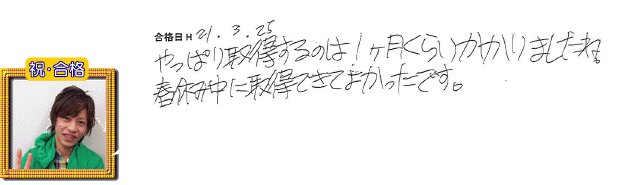 合格日 H 21.3.25
やっぱり取得するのは1ヶ月くらいかかりましたね。
春休み中に取得できてよかったです。
祝・合格